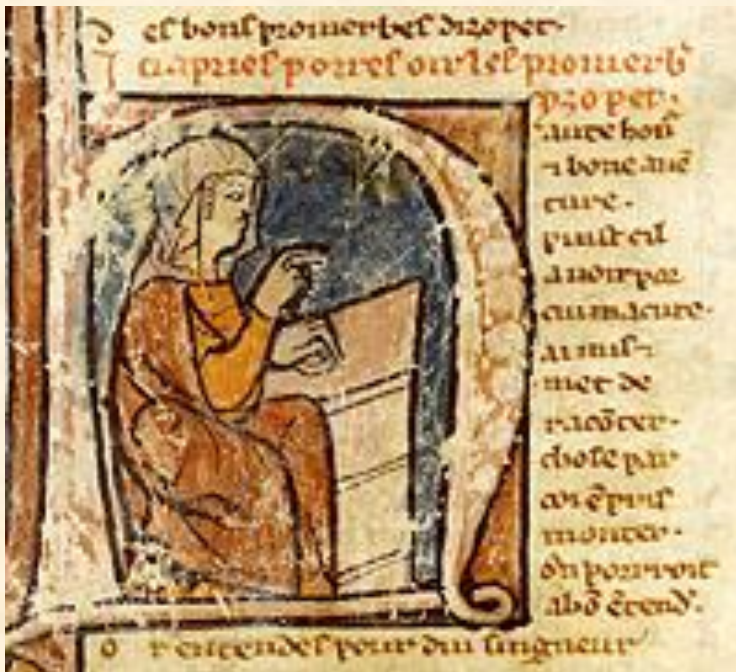 es bons prouerbes dizopet.
ci apries porres oir les prouerb̄
yzopet.
aute hon̄
⁊ bone auē
ture.
puist cil
auoir por
cui ma cure.
ai mis ⁊
met de
racōter.
chose par
coi ē puis
monter.
On porroit
a bō ētend'.
o r entendes pour diu singneur